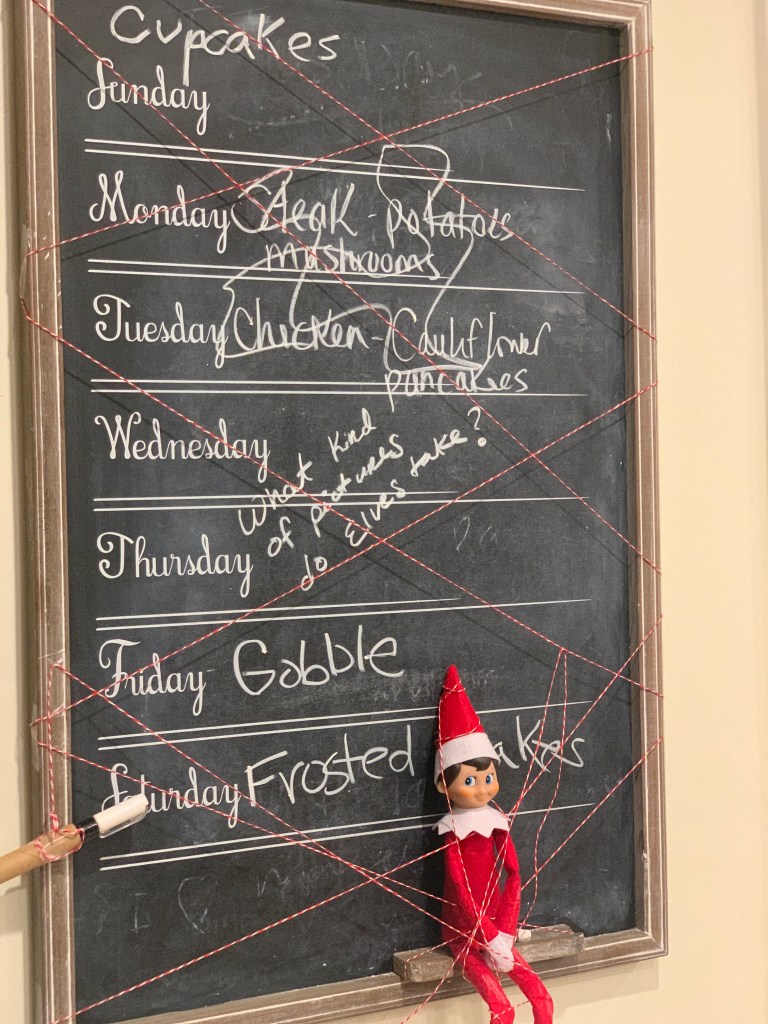 Cupcakes
Sunday
Monday Steak - potatoes
mushrooms
Tuesday Chicken - Cauliflower
pancakes
Wednesday
What kind
of pictures
do Elves take?
Thursday
Friday Gobble
Saturday Frosted akes